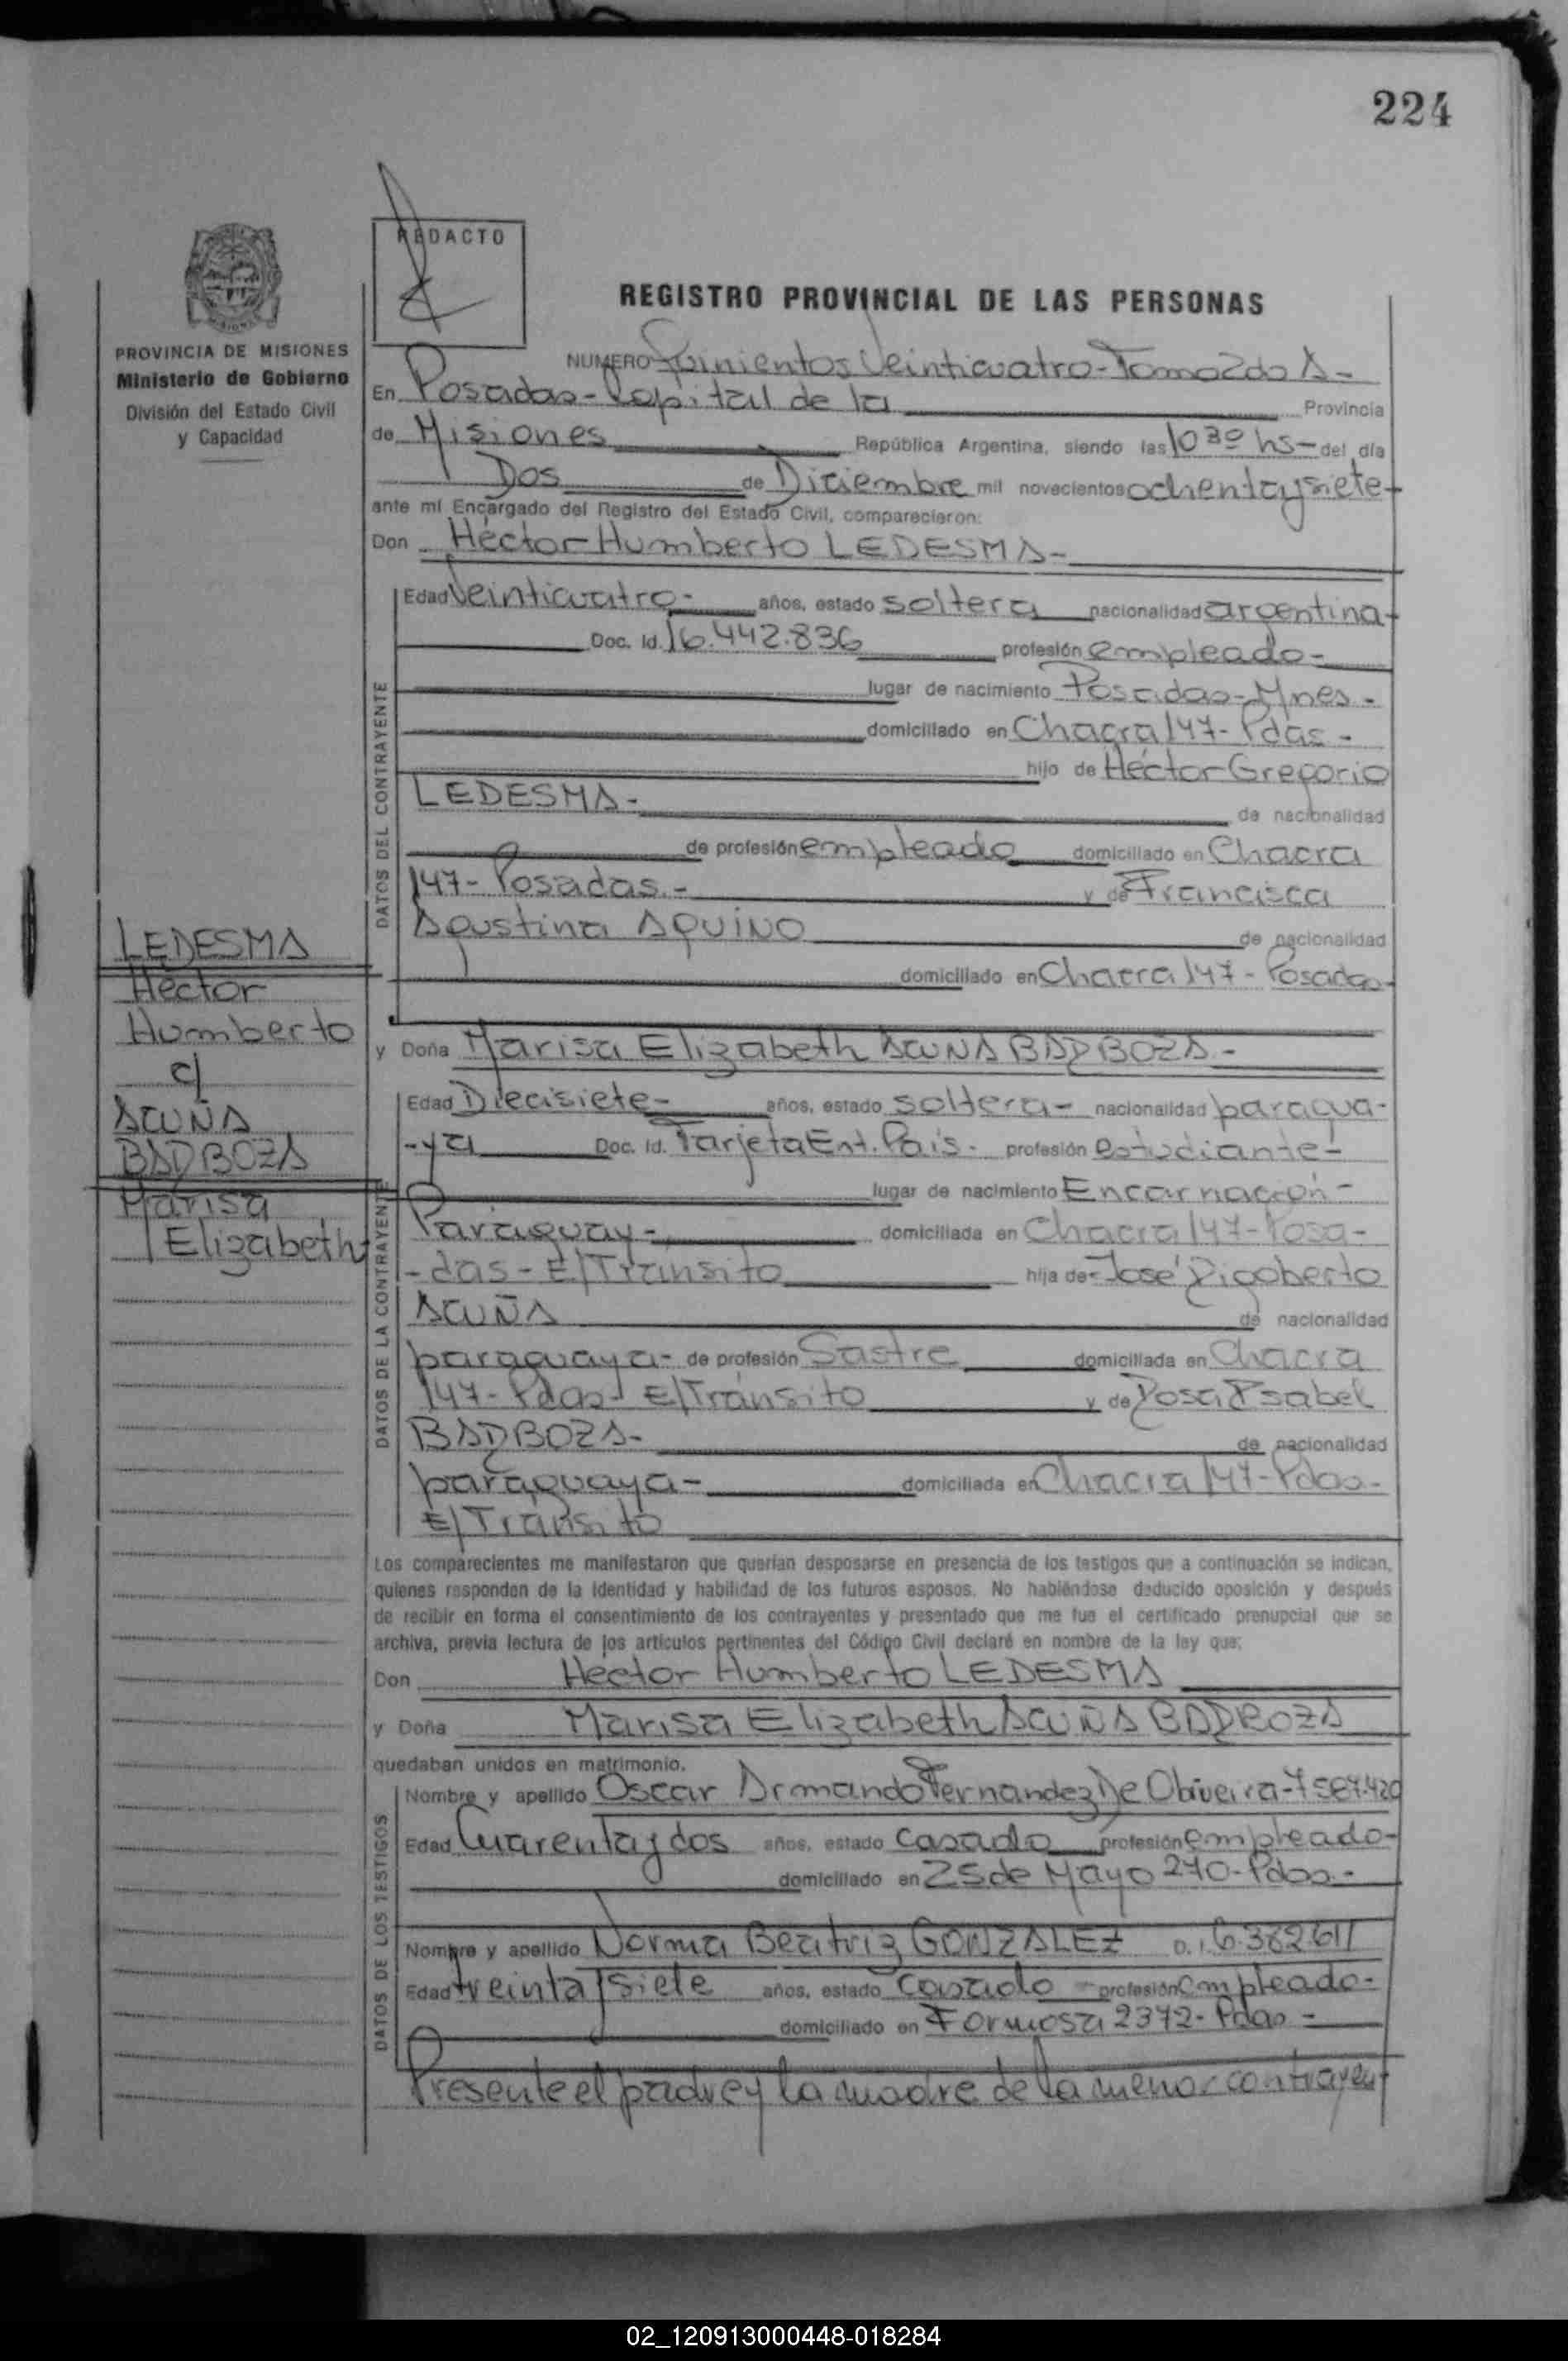 224
REDACTO
REGISTRO PROVINCIAL DE LAS PERSONAS
PROVINCIA DE MISIONES
Ministerio de Gobierno
División del Estado Civil
y Capacidad
NUMERO Quinientos Veinticuatro-Tomo 2do A-
En Posadas-Capital de la Provincia
de Misiones República Argentina, siendo las 10 30 hs- del día
Dos de Diciembre mil novecientos ochentaysiete-
ante mí Encargado del Registro del Estado Civil, comparecieron:
Don Héctor Humberto LEDESMA-
DATOS DEL CONTRAYENTE
Edad Veinticuatro- años, estado soltera nacionalidad argentina-
Doc. Id. 16.442.836 profesión empleado-
lugar de nacimiento Posadas-Mnes-
domiciliado en Chacra 147-Pdas-
hijo de Héctor Gregorio
LEDESMA- de nacionalidad
de profesión empleado domiciliado en Chacra
147-Posadas- y de Francisca
Agustina AQUINO de nacionalidad
domiciliado en Chacra 147-Posadas-
LEDESMA
Héctor
Humberto
c/
ACUÑA
BARBOZA
Marisa
Elizabeth
y Doña Marisa Elizabeth ACUÑA BARBOZA-
DATOS DE LA CONTRAYENTE
Edad Diecisiete- años, estado soltera- nacionalidad paragua-
-ya Doc. Id. Tarjeta Ent. País- profesión estudiante-
lugar de nacimiento Encarnación-
Paraguay- domiciliada en Chacra 147-Posa-
-das-E/Tránsito hija de José Rigoberto
ACUÑA de nacionalidad
paraguaya- de profesión Sastre domiciliada en Chacra
147-Pdas-E/Tránsito y de Rosa Isabel
BARBOZA- de nacionalidad
paraguaya- domiciliada en Chacra 147-Pdas-
E/Tránsito
Los comparecientes me manifestaron que querían desposarse en presencia de los testigos que a continuación se indican,
quienes responden de la identidad y habilidad de los futuros esposos. No habiéndose deducido oposición y después
de recibir en forma el consentimiento de los contrayentes y presentado que me fue el certificado prenupcial que se
archiva, previa lectura de los artículos pertinentes del Código Civil declaré en nombre de la ley que:
Don Héctor Humberto LEDESMA
y Doña Marisa Elizabeth ACUÑA BARBOZA
quedaban unidos en matrimonio.
DATOS DE LOS TESTIGOS
Nombre y apellido Oscar Armando Fernandez De Oliveira-7587.420
Edad Cuarentay dos años, estado casado profesión empleado-
domiciliado en 25 de Mayo 270-Pdas-
Nombre y apellido Norma Beatriz GONZALEZ D.I. 6.382611
Edad treinta y siete años, estado casado profesión empleado-
domiciliado en Formosa 2372-Pdas-
Presente el padre y la madre de la menor contrayent
02_120913000448-018284